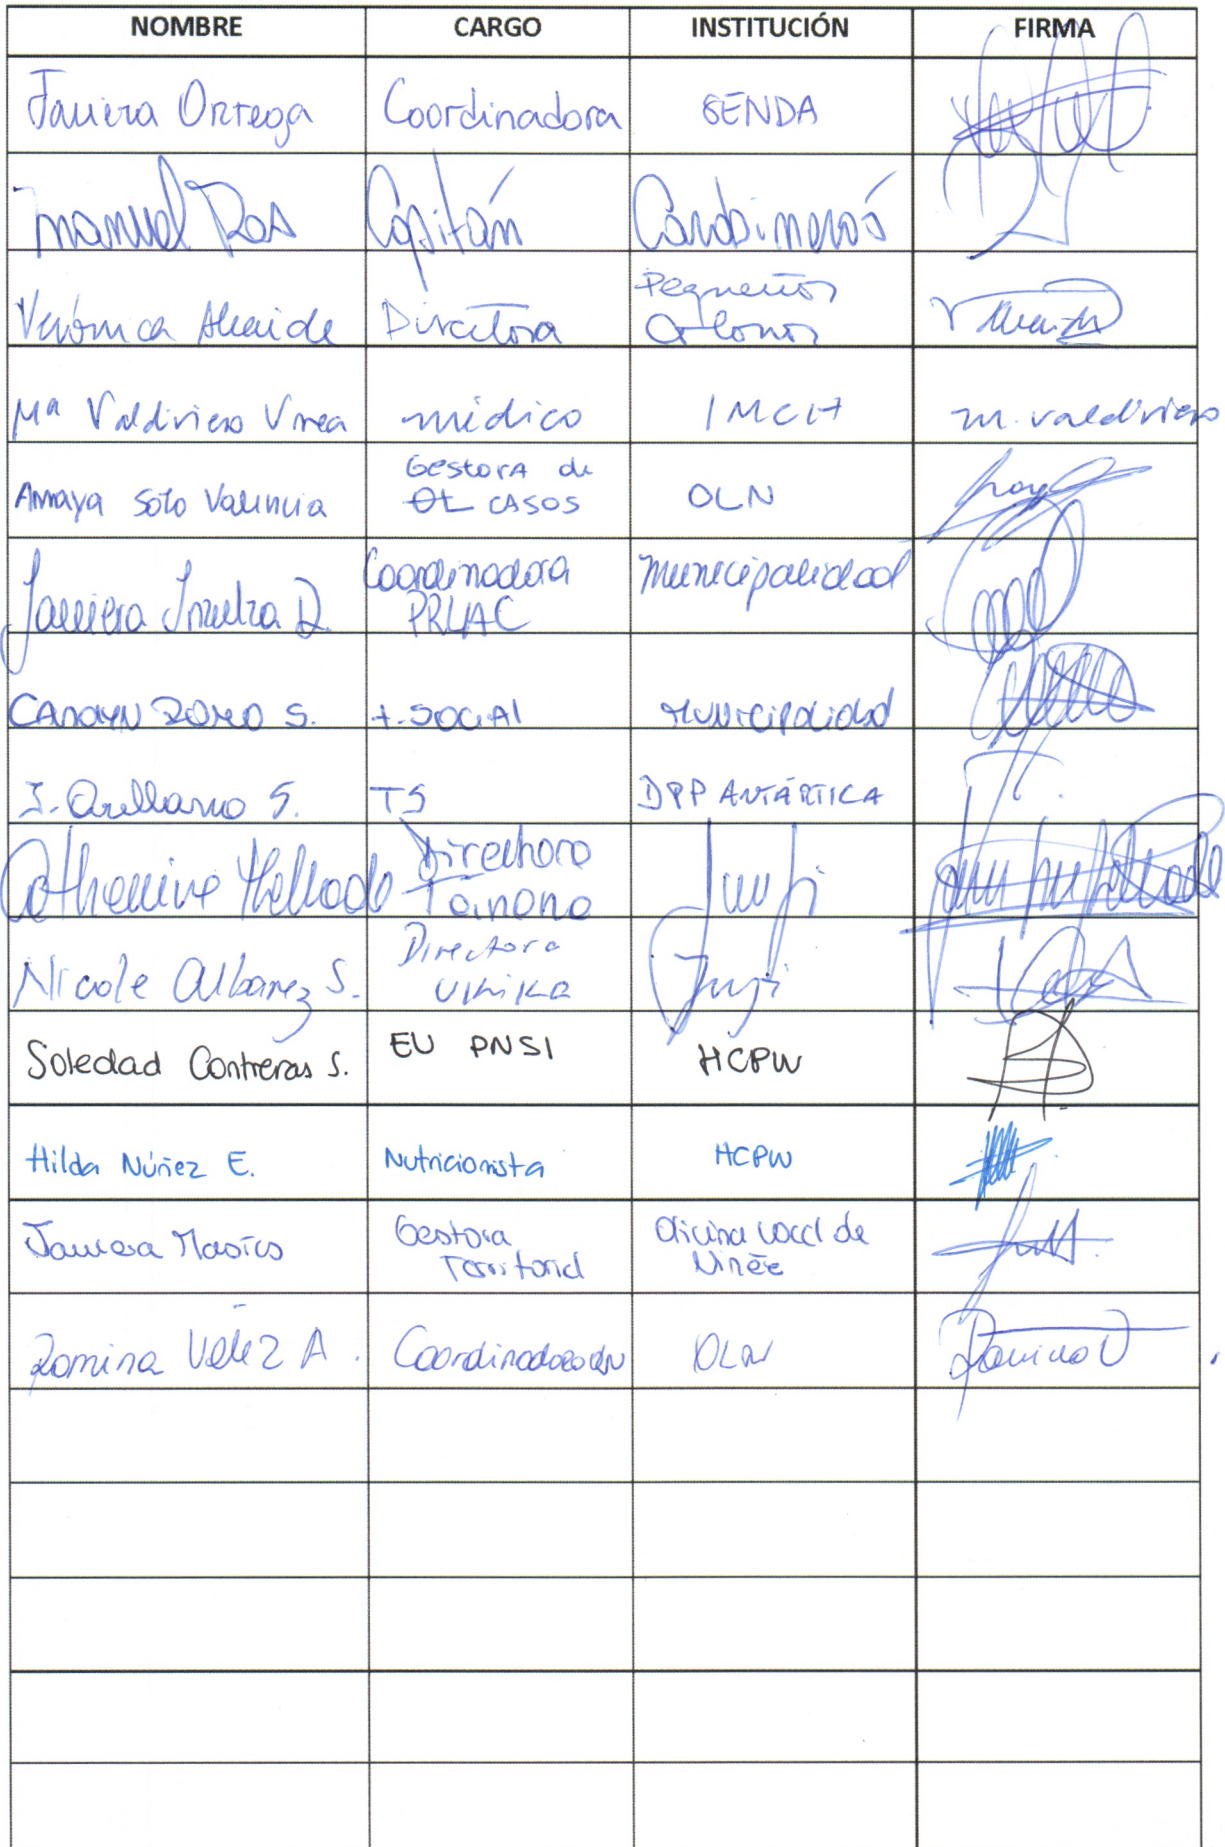 NOMBRE CARGO INSTITUCIÓN FIRMA
Javiera Ortega Coordinadora SENDA
Manuel Capitán Carabineros
Verónica Alcaide Directora Pequeños
Colonos
Mª Valdivieso médico IMCH m. valdivieso
Amaya Soto Valencia Gestora de
CASOS OLN
Javiera D. Coordinadora
Municipalidad
S. T. SOCIAL Municipalidad
I. Arellano S. TS DPP ANTÁRTICA
Catherine Mellado Directora
Junji
Nicole S. Directora
Ukika Junji
Soledad Contreras S. EU PNSI HCPW
Hilda Núñez E. Nutricionista HCPW
Javiera Gestora
Territorial Oficina Local de
Niñez
Romina Velez A. Coordinadora OLN Romina V